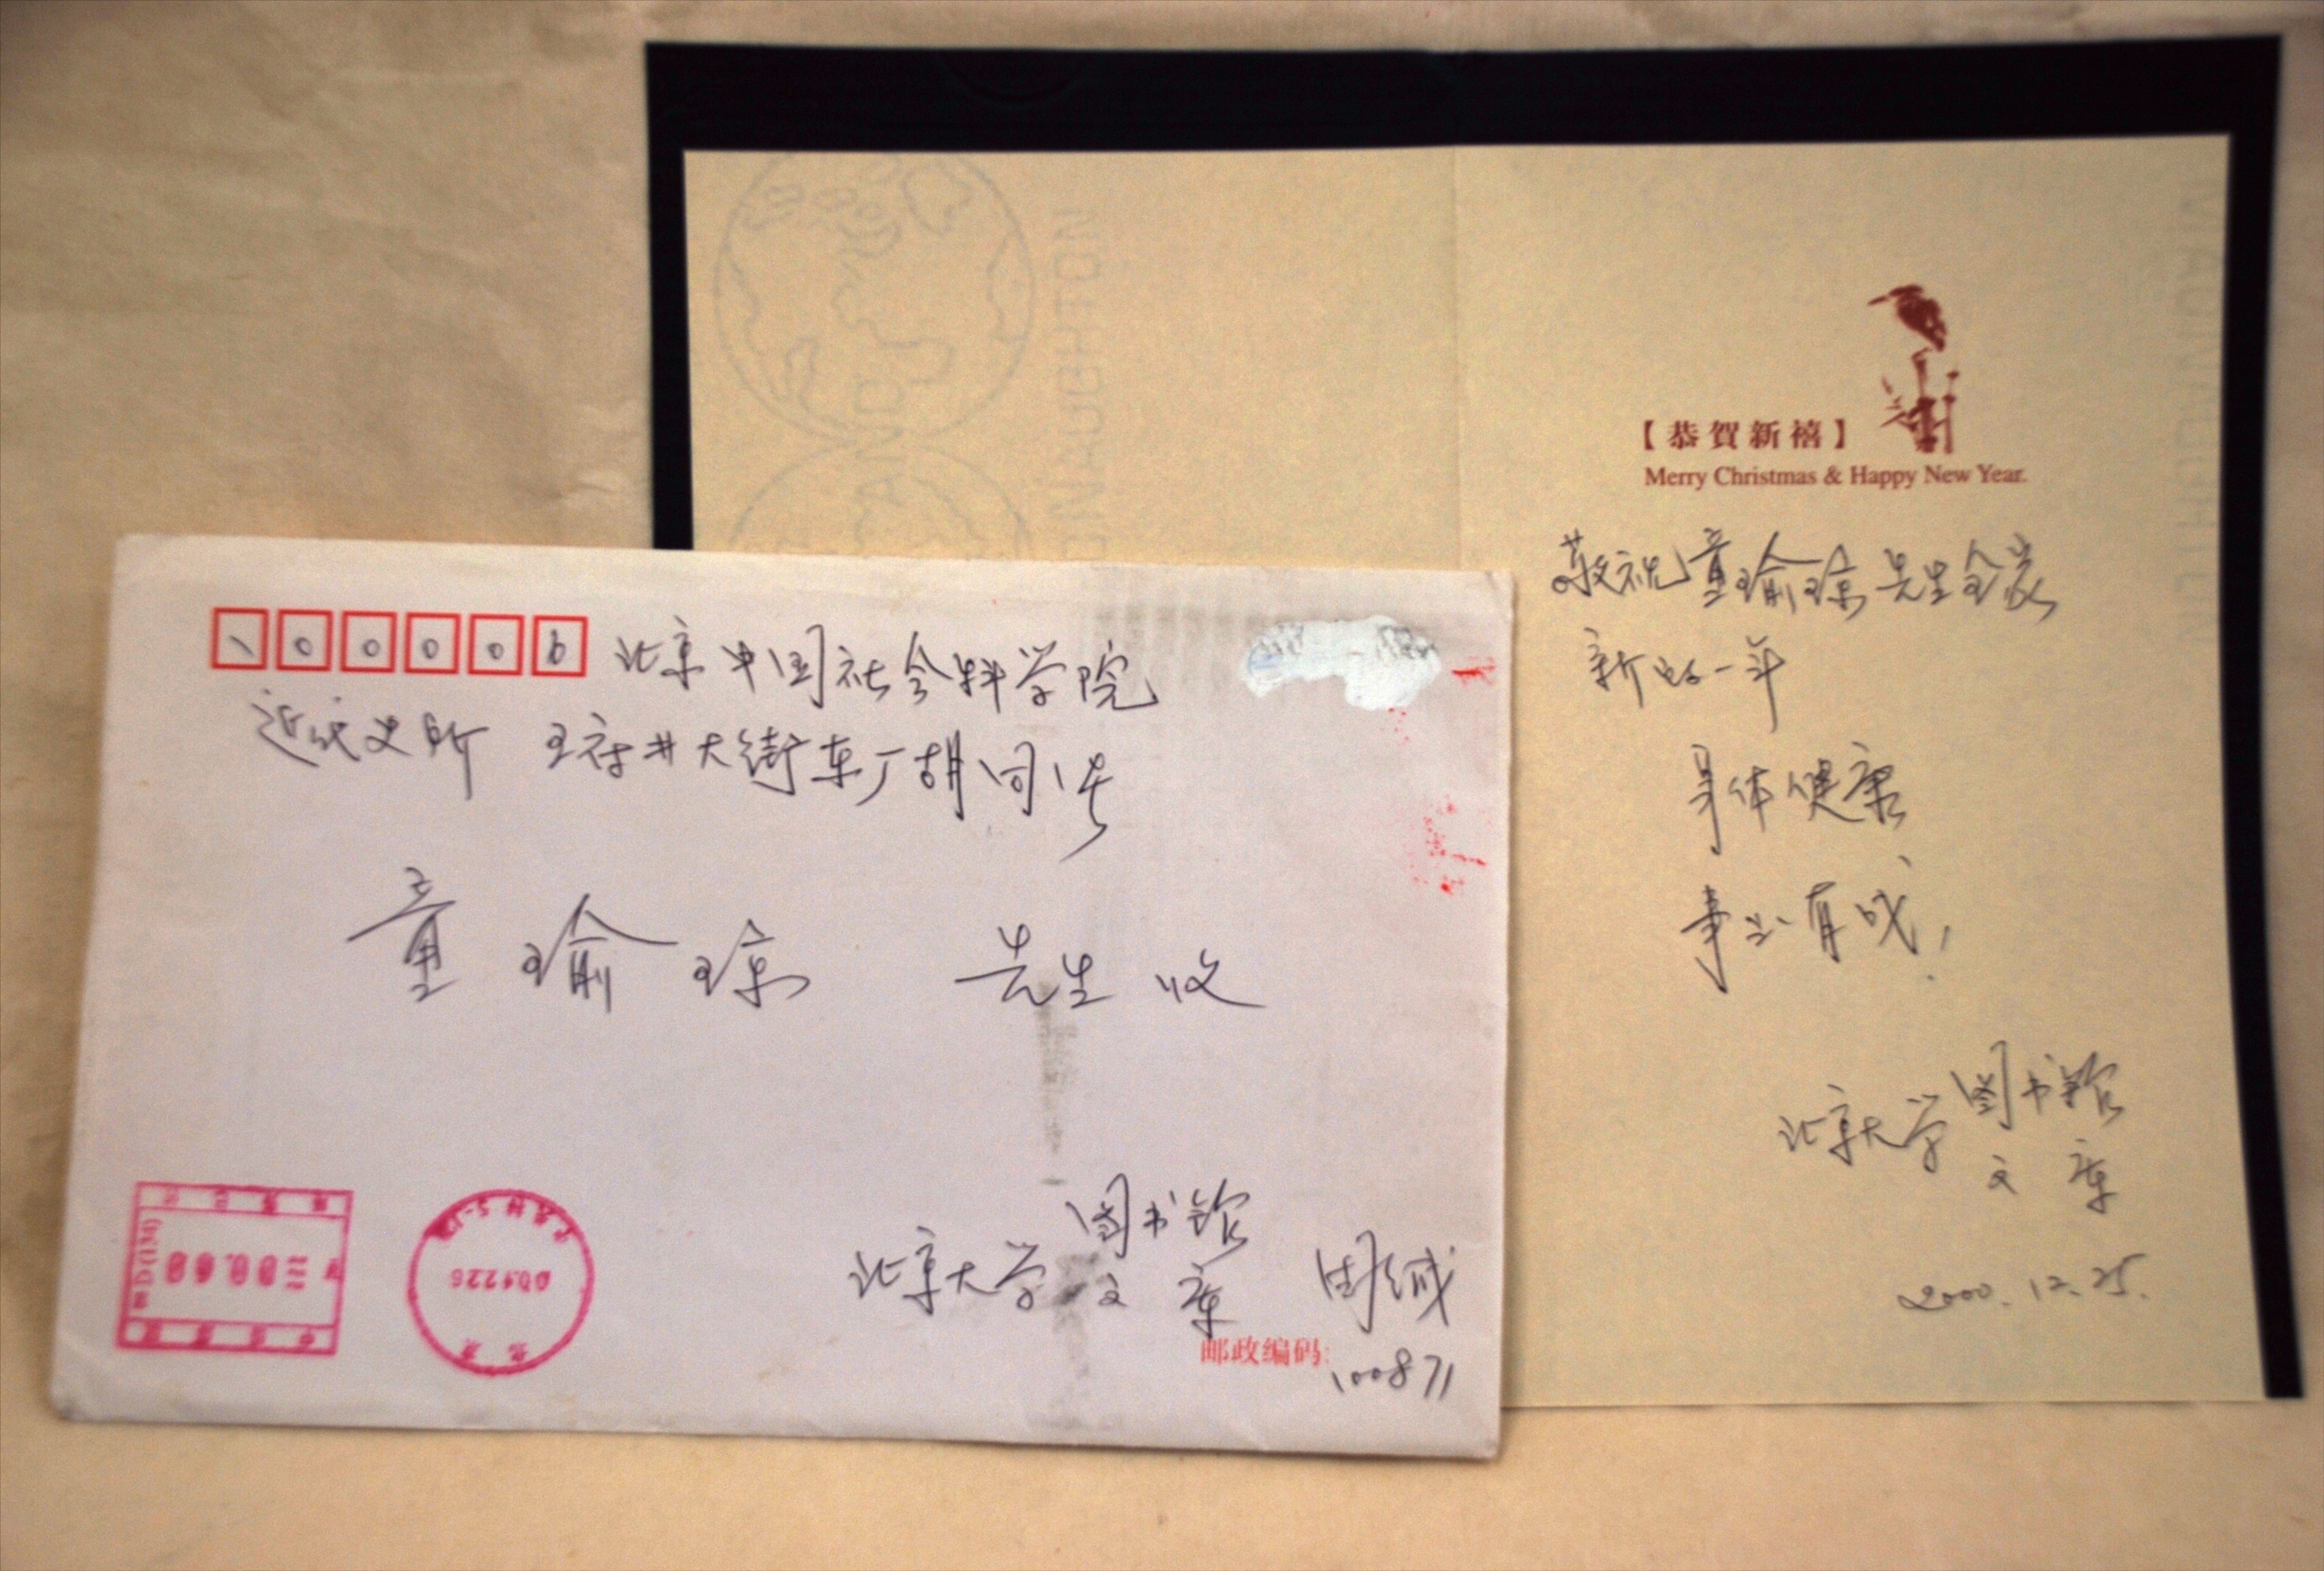 100006 北京中国社会科学院
近代史所 王府井大街东厂胡同1号
童瑜琼 先生 收
北京大学 图书馆
文库
邮政编码:
100871
001226
【恭賀新禧】
Merry Christmas & Happy New Year.
敬祝童瑜琼先生全家
新的一年
身体健康
事业有成!
北京大学 图书馆
文库
2000.12.25.